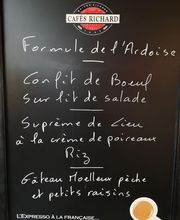 CAFÉS RICHARD
Formule de l'Ardoise
Confit de Boeuf
sur lit de salade
Suprême de Lieu
à la crème de poireaux
Riz
Gâteau Moelleux pêche
et petits raisins
L'EXPRESSO À LA FRANÇAISE...